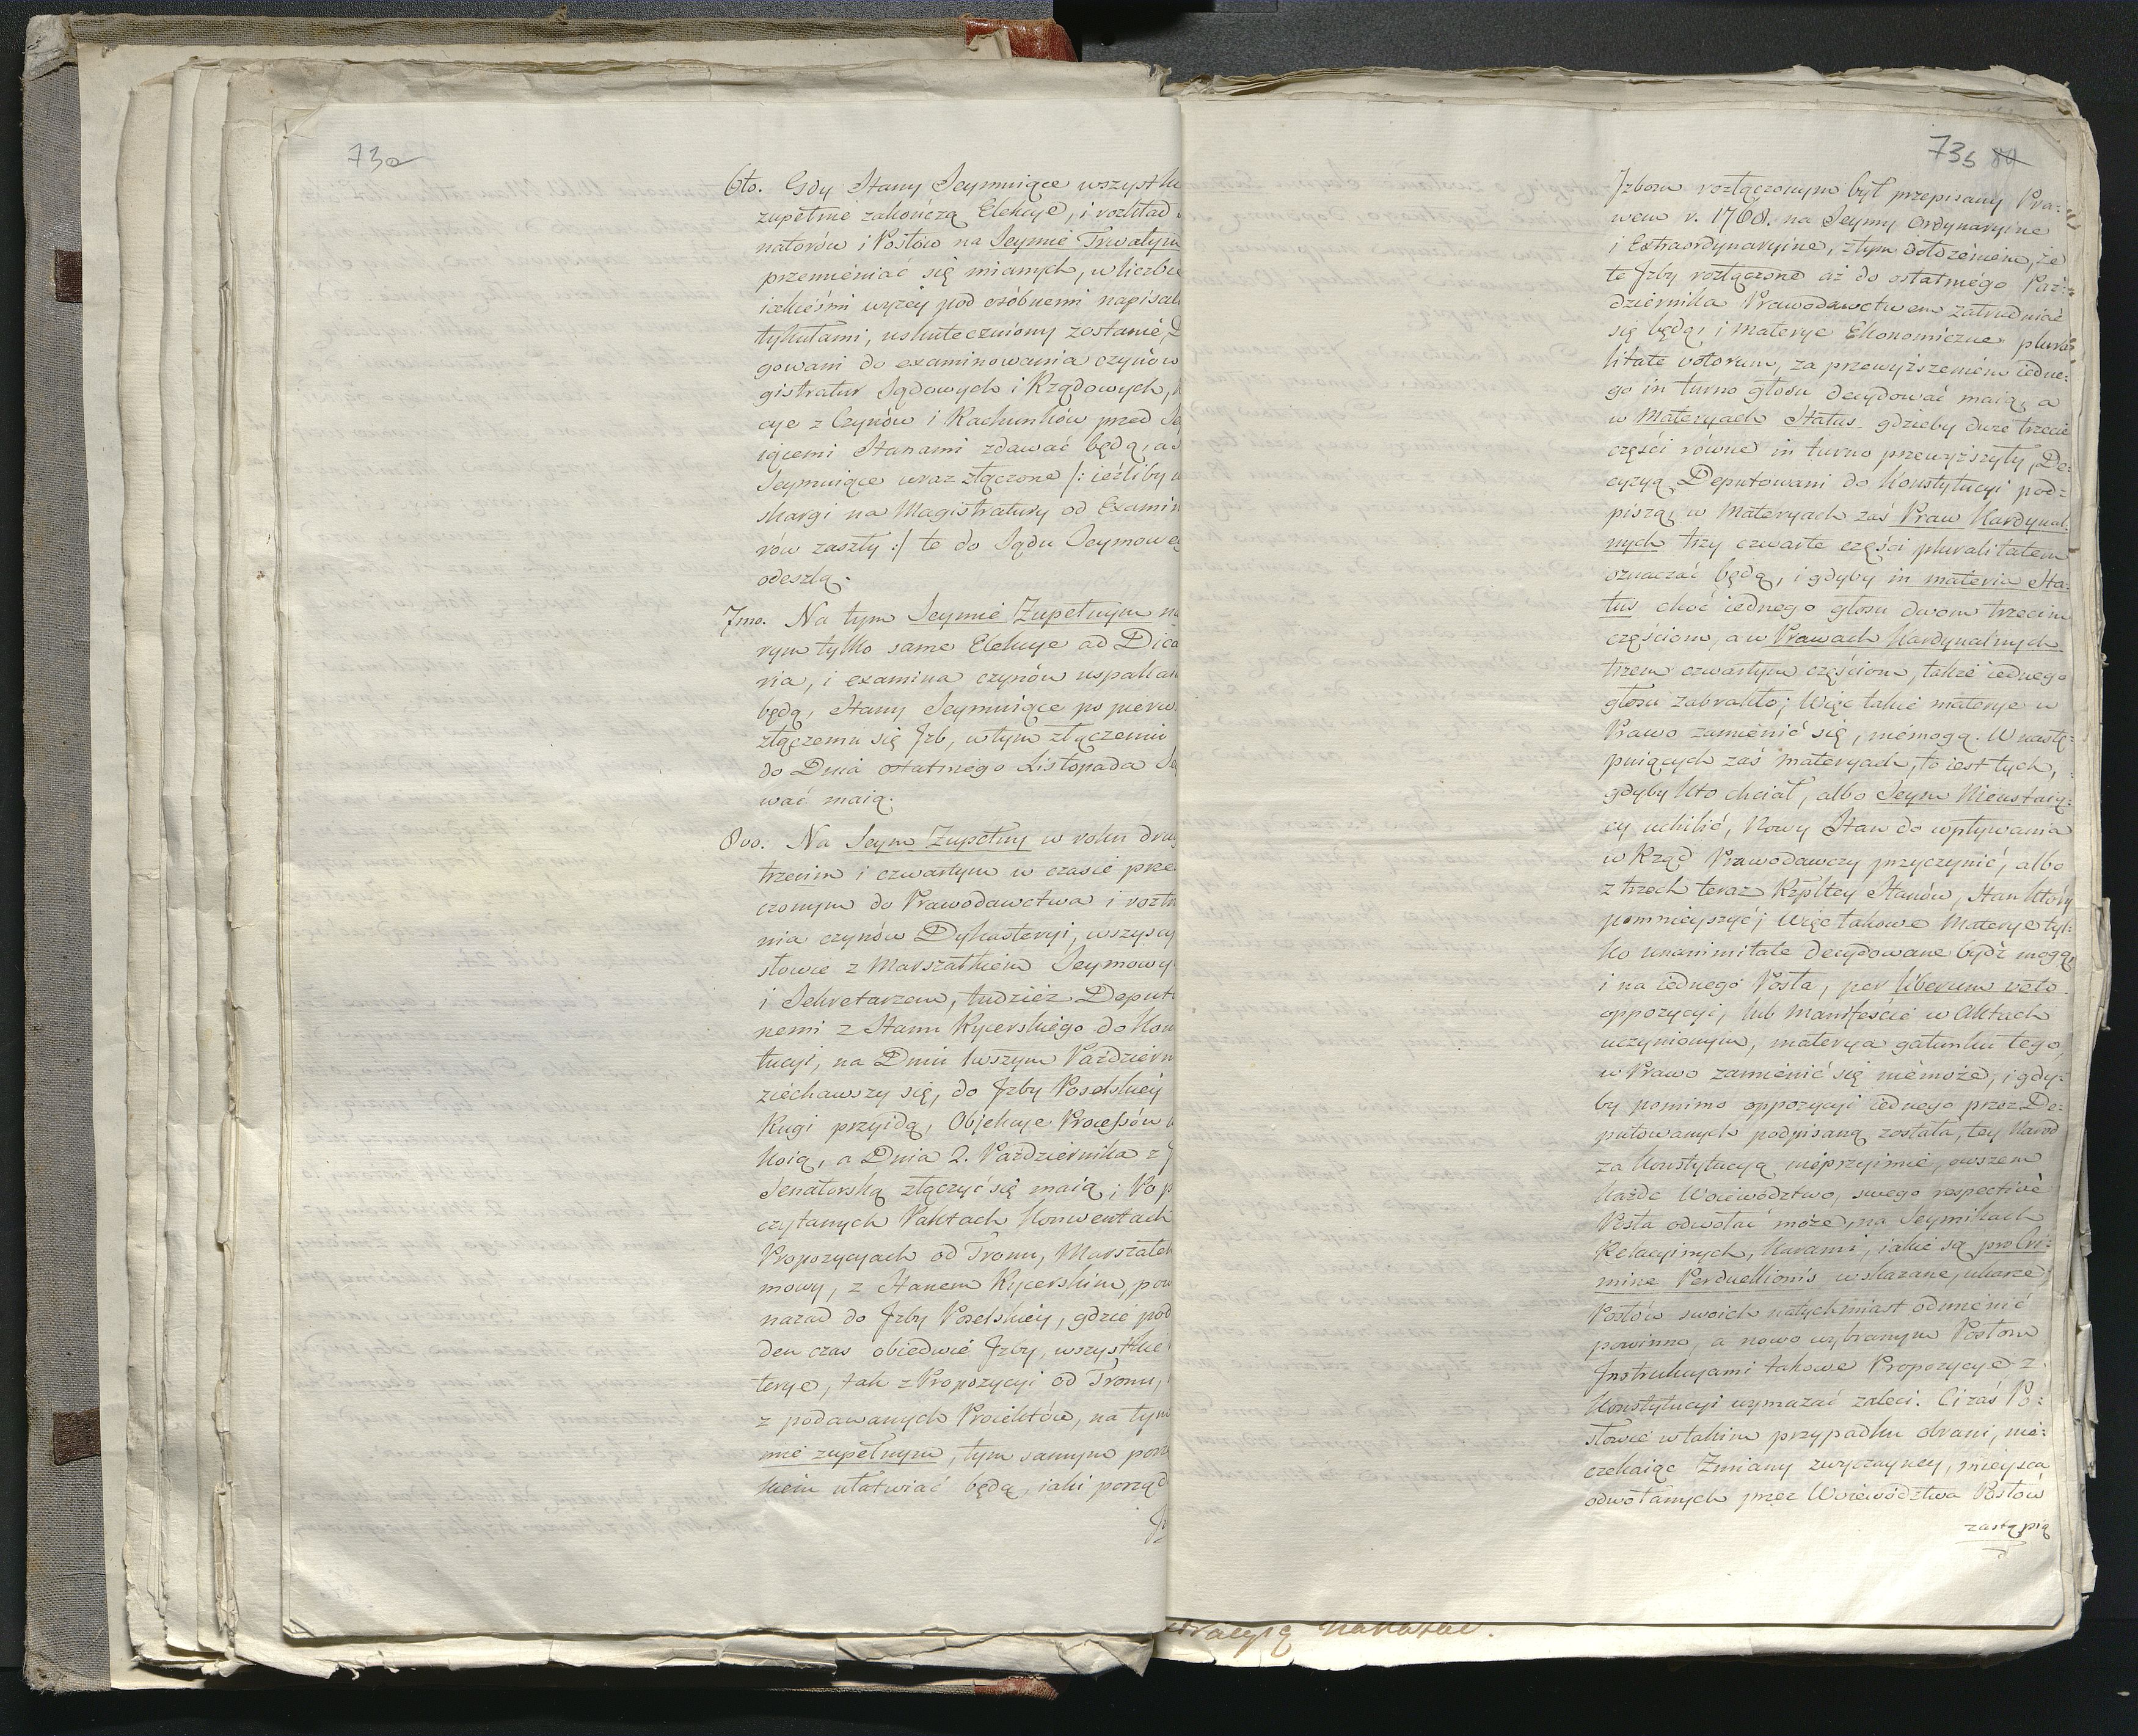 73a
6to. Gdy Stany Seymuiące wszystk
zupełnie zakończą Elekcye, i rozkład
natorów i Posłów na Seymie Trwałym
przemieniać się mianych, w liczbie
iakieśmi wyżey pod osóbnemi napisali
tykułami, uskuteczniony zostanie, D
gowani do examinowania czynów
gistratur Sądowych i Rządowych,
cye z Czynów i Rachunków przed Se
iącemi Stanami zdawać będą, a
Seymuiące wraz złączone /: ieżliby
skargi na Magistratury od Examin
rów zaszły :/ te do Sądu Seymoweg
odeszlą.
7mo. Na tym Seymie Zupełnym na
rym tylko same Elekcye ad Dica
ria, i examina czynów uspakaia
będą, Stany Seymuiące po pierw
złączeniu się Jzb, w tym złączeniu
do Dnia ostatniego Listopada Se
wać maią.
8vo. Na Seym Zupełny w roku drug
trzecim i czwartym w czasie prze
czonym do Prawodawctwa i roztr
nia czynów Dykasteryi, wszyscy
słowie z Marszałkiem Seymowy
i Sekretarzem, tudzież Deputo
nemi z Stanu Rycerskiego do Kon
tucyi, na Dniu 1wszym Październ
ziechawszy się, do Jzby Poselskiey
Rugi przyidą, Objekcye Processów
koią, a Dnia 2. Października z J
Senatorską złączyć się maią; Po p
czytanych Paktach Konwentach
Propozycyach od Tronu, Marszałek
mowy, z Stanem Rycerskim, pow
nazad do Jzby Poselskiey, gdzie pod
den czas obiedwie Jzby, wszystkie
terye, tak z Propozycyi od Tronu,
z podawanych Proiektów, na tym
mie zupełnym, tym samym porz
kiem ułatwiać będą, iaki porząd
Jz
73b 84
Jzbom rozłączonym był przepisany Pra:
wem r. 1768. na Seymy Ordynaryine
i Extraordynaryine, z tym dołożeniem, że
te Jzby rozłączone aż do ostatniego Paź:
dziernika Prawodawctwem zatrudniać
się będą, i materye Ekonomiczne plura:
litate votorum, za przewyższeniem iedne:
go in turno głosu decydować maią, a
w Materyach Status gdzieby dwie trzecie
części równe in turno przewyższyły, De:
cyzyą Deputowani do Konstytucyi pod:
piszą, w Materyach zaś Praw Kardynal:
nych trzy czwarte części pluralitatem
oznaczać będą, i gdyby in materia Sta:
tus choć iednego głosu dwom trzecim
częściom, a w Prawach Kardynalnych
trzem czwartym częściom, także iednego
głosu zabrakło; Więc takie materye w
Prawo zamienić się, niemogą. W nastę:
puiących zaś materyach, to iest tych,
gdyby kto chciał, albo Seym Nieustaią:
cy uchilić, Nowy Stan do wpływania
w Rząd Prawodawczy przyczynić, albo
z trzech teraz Rzpltey Stanów, Stan który
pomnieyszyć; Więc takowe Materye tyl:
ko unanimitate decydowane bydź mogą,
i na iednego Posła, per liberum veto
oppozycyi, lub Manifeście w Aktach
uczynionym, materya gatunku tego,
w Prawo zamienić się niemoże, i gdy:
by pomimo oppozycyi iednego przez De:
putowanych podpisaną została, tey Narod
za Konstytucyą nieprzyimie, owszem
każde Woiewództwo, swego respectivè
Posła odwołać może, na Seymikach
Relacyinych, karami, iakie są pro Cri:
mine Perduellionis wskazane, ukarze,
Posłów swoich natychmiast odmienić
powinno, a nowo wybranym Posłom
Instrukcyami takowe Propozycye z
Konstytucyi wymazać zaleci. Ci zaś Po:
słowie w takim przypadku obrani, nie:
czekaiąc Zmiany zwyczayney, mieysca
odwołanych przez Woiewództwa Posłów
zastąpią
nakazać.